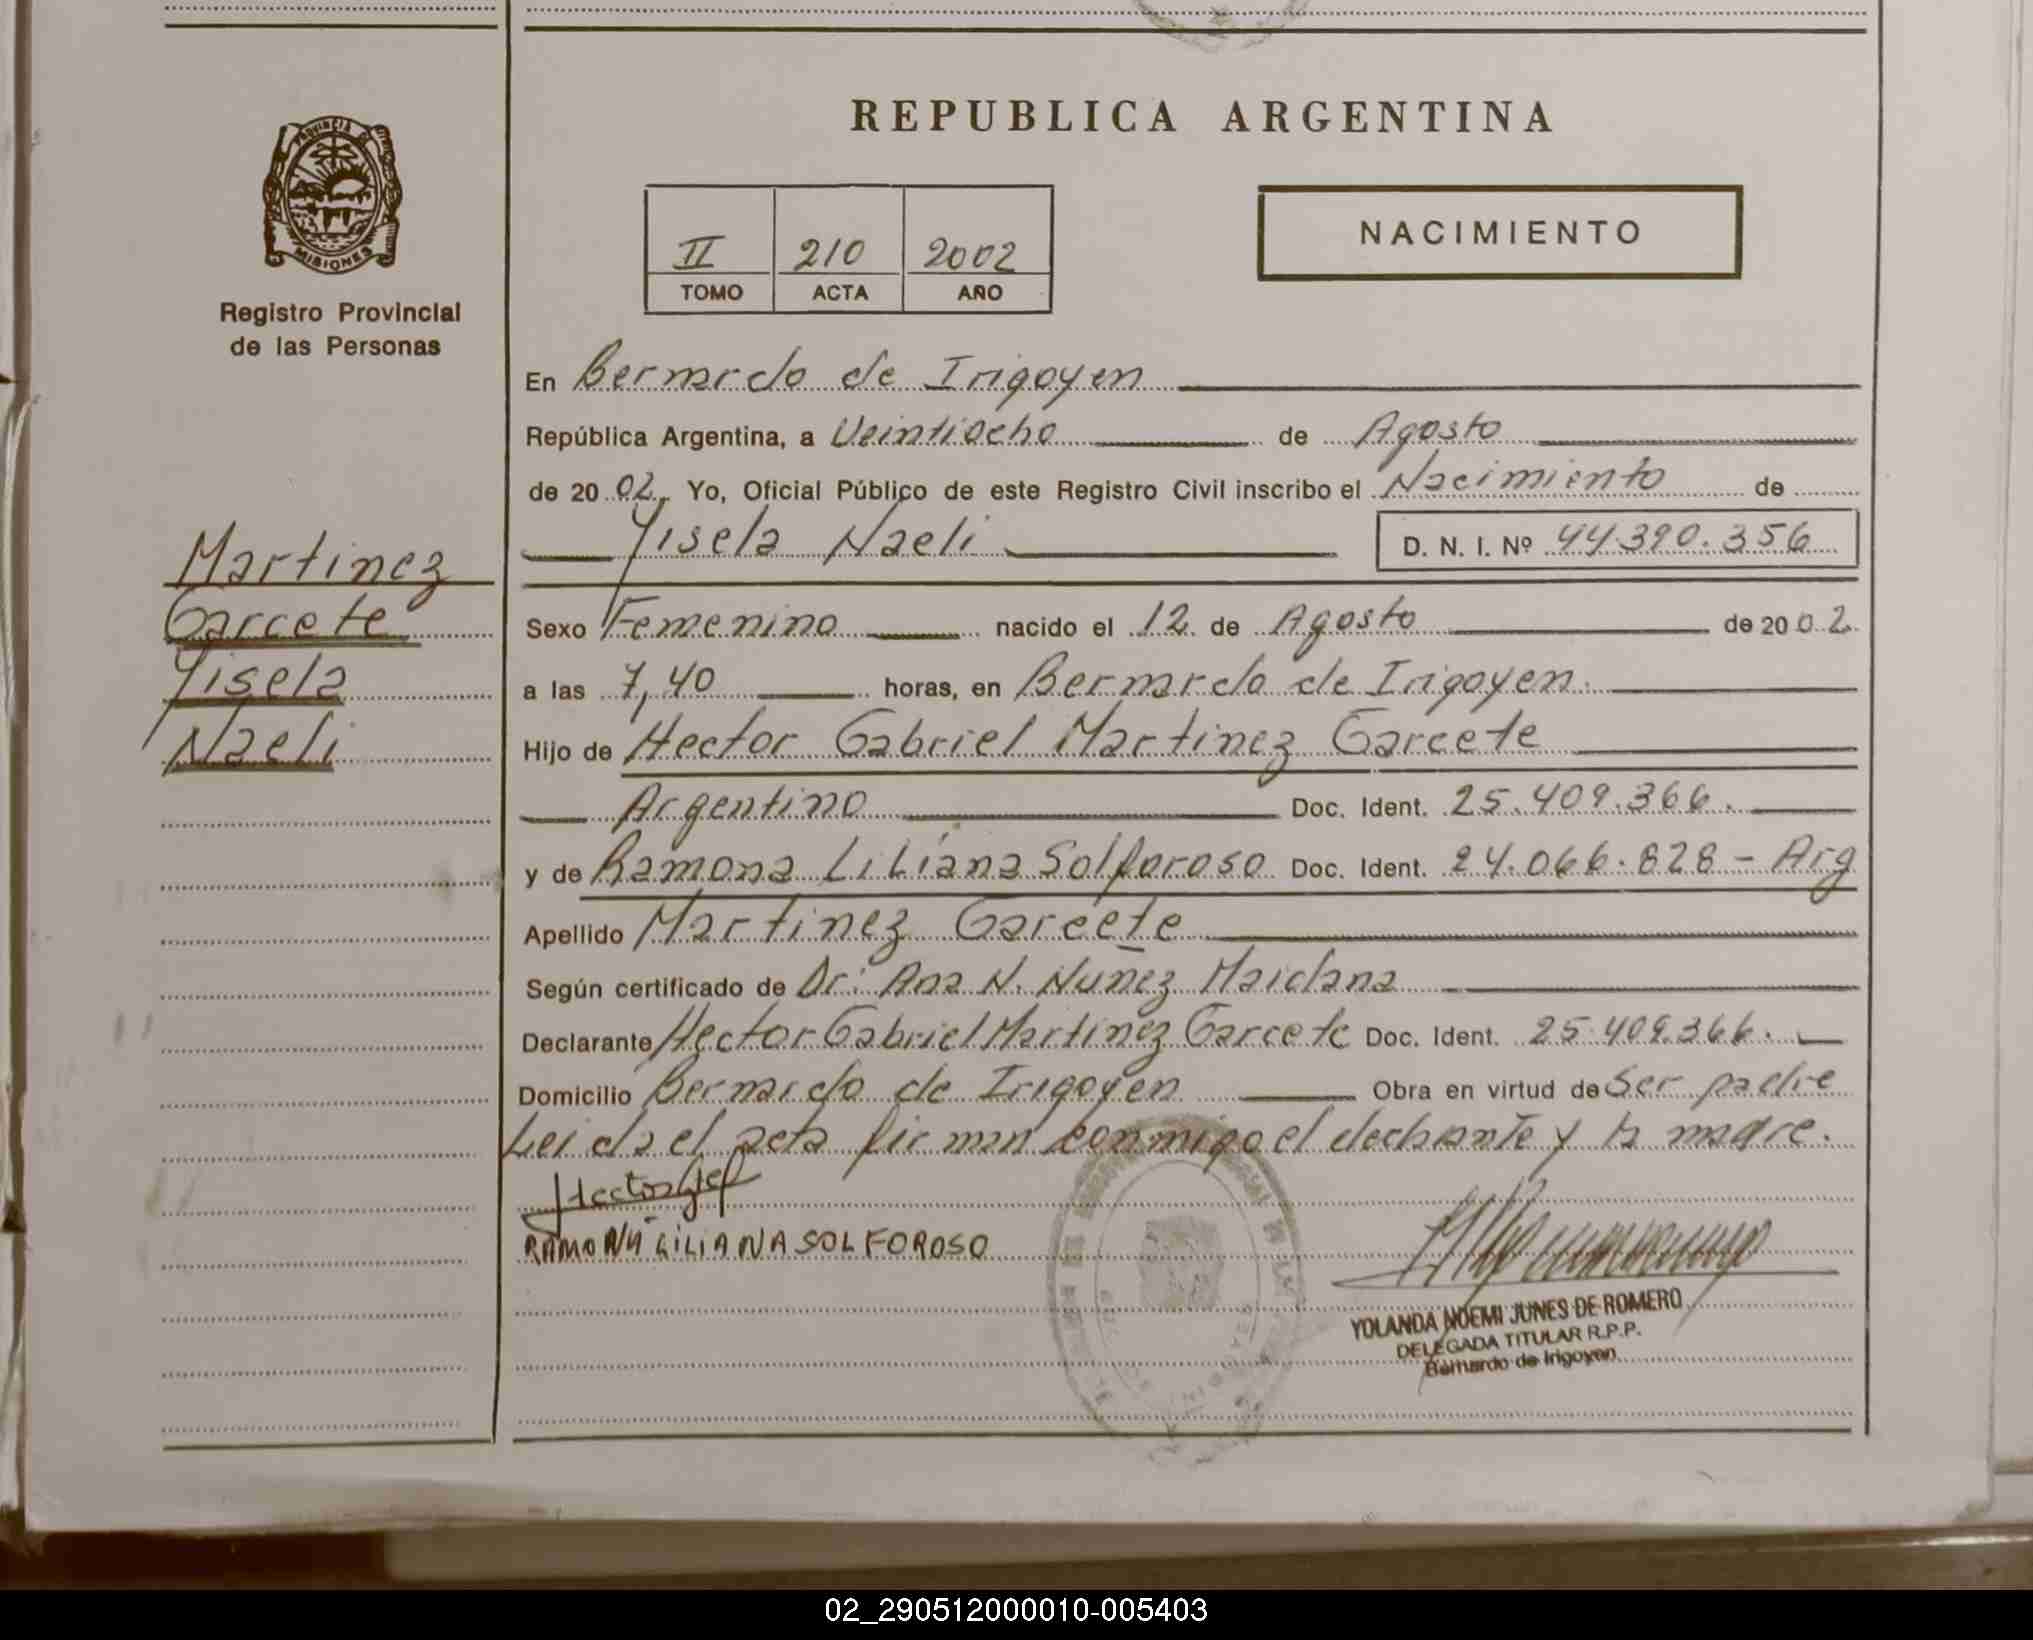 REPUBLICA ARGENTINA
PROVINCIA DE
MISIONES
Registro Provincial
de las Personas
II 210 2002
TOMO ACTA AÑO
NACIMIENTO
En Bernardo de Irigoyen
República Argentina, a Veintiocho de Agosto
de 20 02 Yo, Oficial Público de este Registro Civil inscribo el Nacimiento de
Yisela Naeli D. N. I. Nº 44.390.356
Martinez
Garcete
Yisela
Naeli
Sexo Femenino nacido el 12 de Agosto de 20 02
a las 7,40 horas, en Bernardo de Irigoyen.
Hijo de Hector Gabriel Martinez Garcete
Argentino Doc. Ident. 25.409.366.
y de Ramona Liliana Solforoso Doc. Ident. 24.066.828 - Arg
Apellido Martinez Garcete
Según certificado de Dr: Ana N. Nunez Maidana
Declarante Hector Gabriel Martinez Garcete Doc. Ident. 25.409.366.
Domicilio Bernardo de Irigoyen Obra en virtud de Ser padre
Leida el acta firman conmigo el declarante y la madre.
RAMONA LILIANA SOLFOROSO
YOLANDA NOEMI JUNES DE ROMERO
DELEGADA TITULAR R.P.P.
Bernardo de Irigoyen
02_290512000010-005403